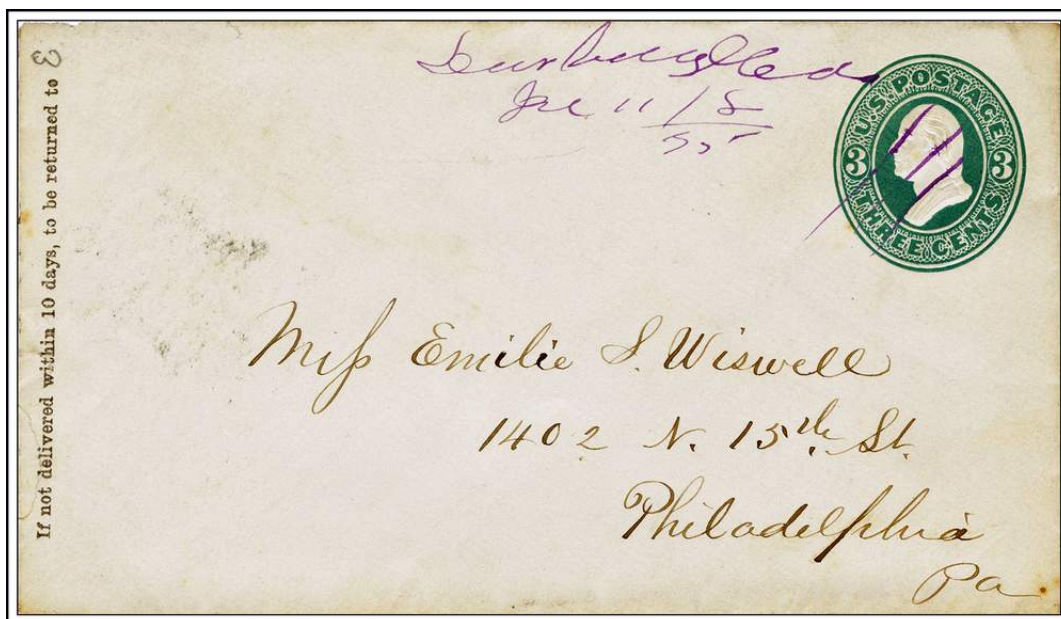 3
If not delivered within 10 days, to be returned to
11/8
U.S. POSTAGE
3 3
THREE CENTS
Miſs Emilie S. Wiswell
1402 N. 15th St.
Philadelphia
Pa